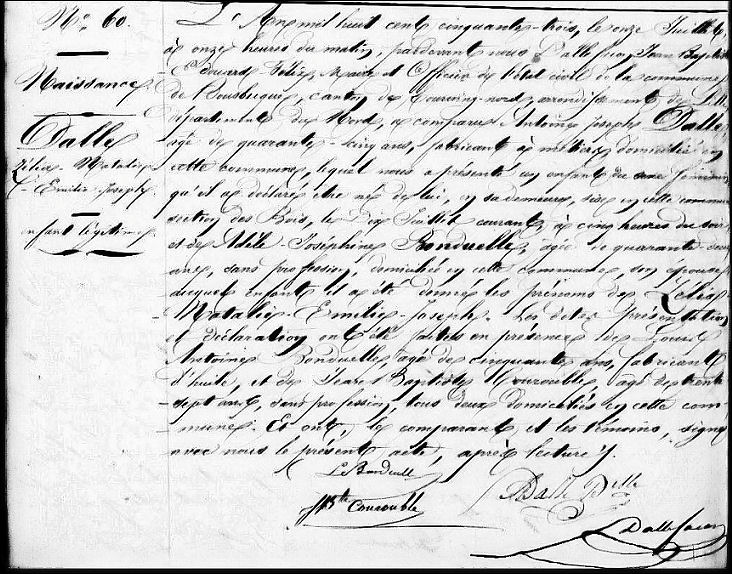 N° 60.
Naissance
Dalle
Zélia Natalie
Emilie-joseph
enfant légitime
L'An mil huit cent cinquante-trois, le onze Juillet,
à onze heures du matin, pardevant nous Dalle Jean Baptiste
Edouard Maire et Officier de l'état civil de la commune
de Bousbecque, canton de Tourcoing-nord, arrondissement de Lille
département du Nord, a comparu Antoine joseph Dalle,
agé de quarante-cinq ans, fabricant domicilié en
cette commune, lequel nous a présenté un enfant du sexe féminin
qu'il a déclaré être né de lui, en sa demeure, sise en cette commune
section des Bois, le dix Juillet courant, à cinq heures du soir
et de Adèle-Joséphine Bonduelle, agée de quarante-deux
ans, sans profession, domiciliée en cette commune, son épouse
auquel enfant il a été donné les prénoms de Zélia-
Natalie-Emilie-joseph. Les dites présentation
et déclaration ont été faites en présence de Louis
Antoine Bonduelle, agé de cinquante ans, fabricant
d'huile, et de Jean Baptiste Couroublé, agé de trente
sept ans, sans profession, tous deux domiciliés en cette com-
mune. Et ont, le comparant et les témoins, signé
avec nous le présent acte, après lecture.
Ls Bonduelle
JBte Courouble
Dalle Belle
Dalle